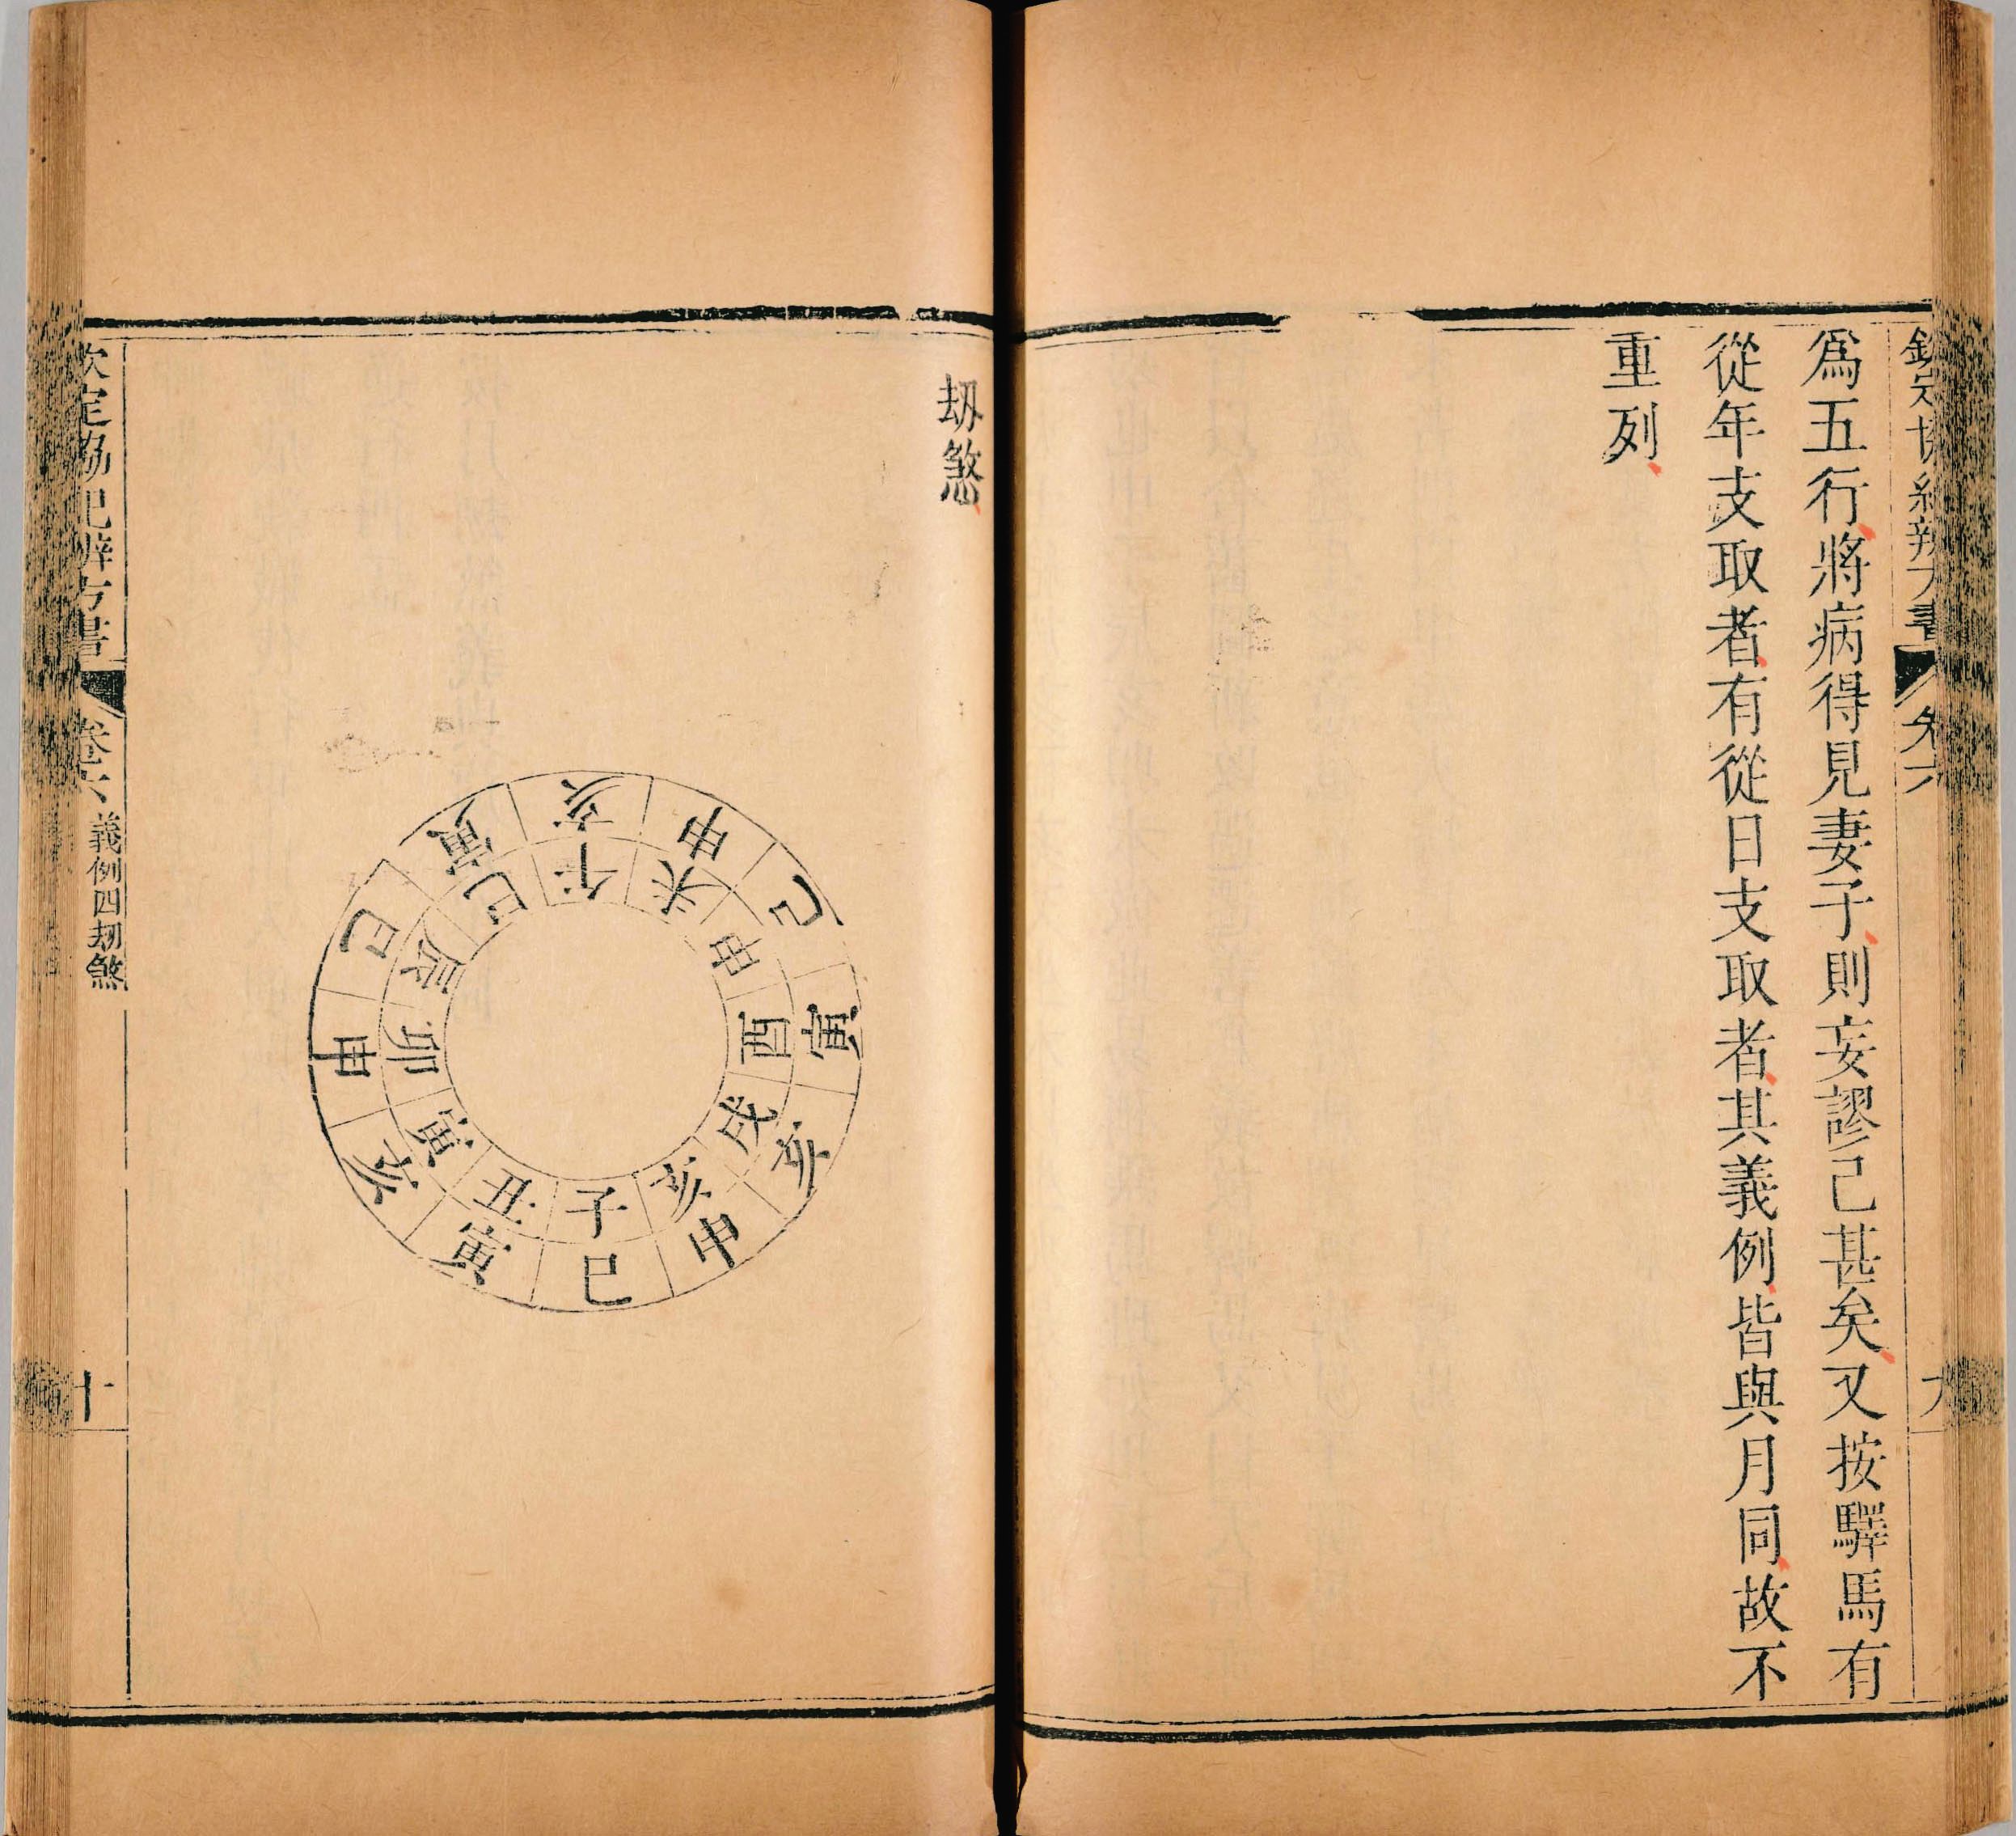 欽定協紀辨方書 卷六 九
爲五行將病得見妻子則妄謬已甚矣又按驛馬有
從年支取者有從日支取者其義例皆與月同故不
重列
刼煞
亥申巳寅亥申巳寅亥申巳寅
午未申酉戌亥子丑寅卯辰巳
欽定協紀辨方書 卷六 義例四刼煞 十